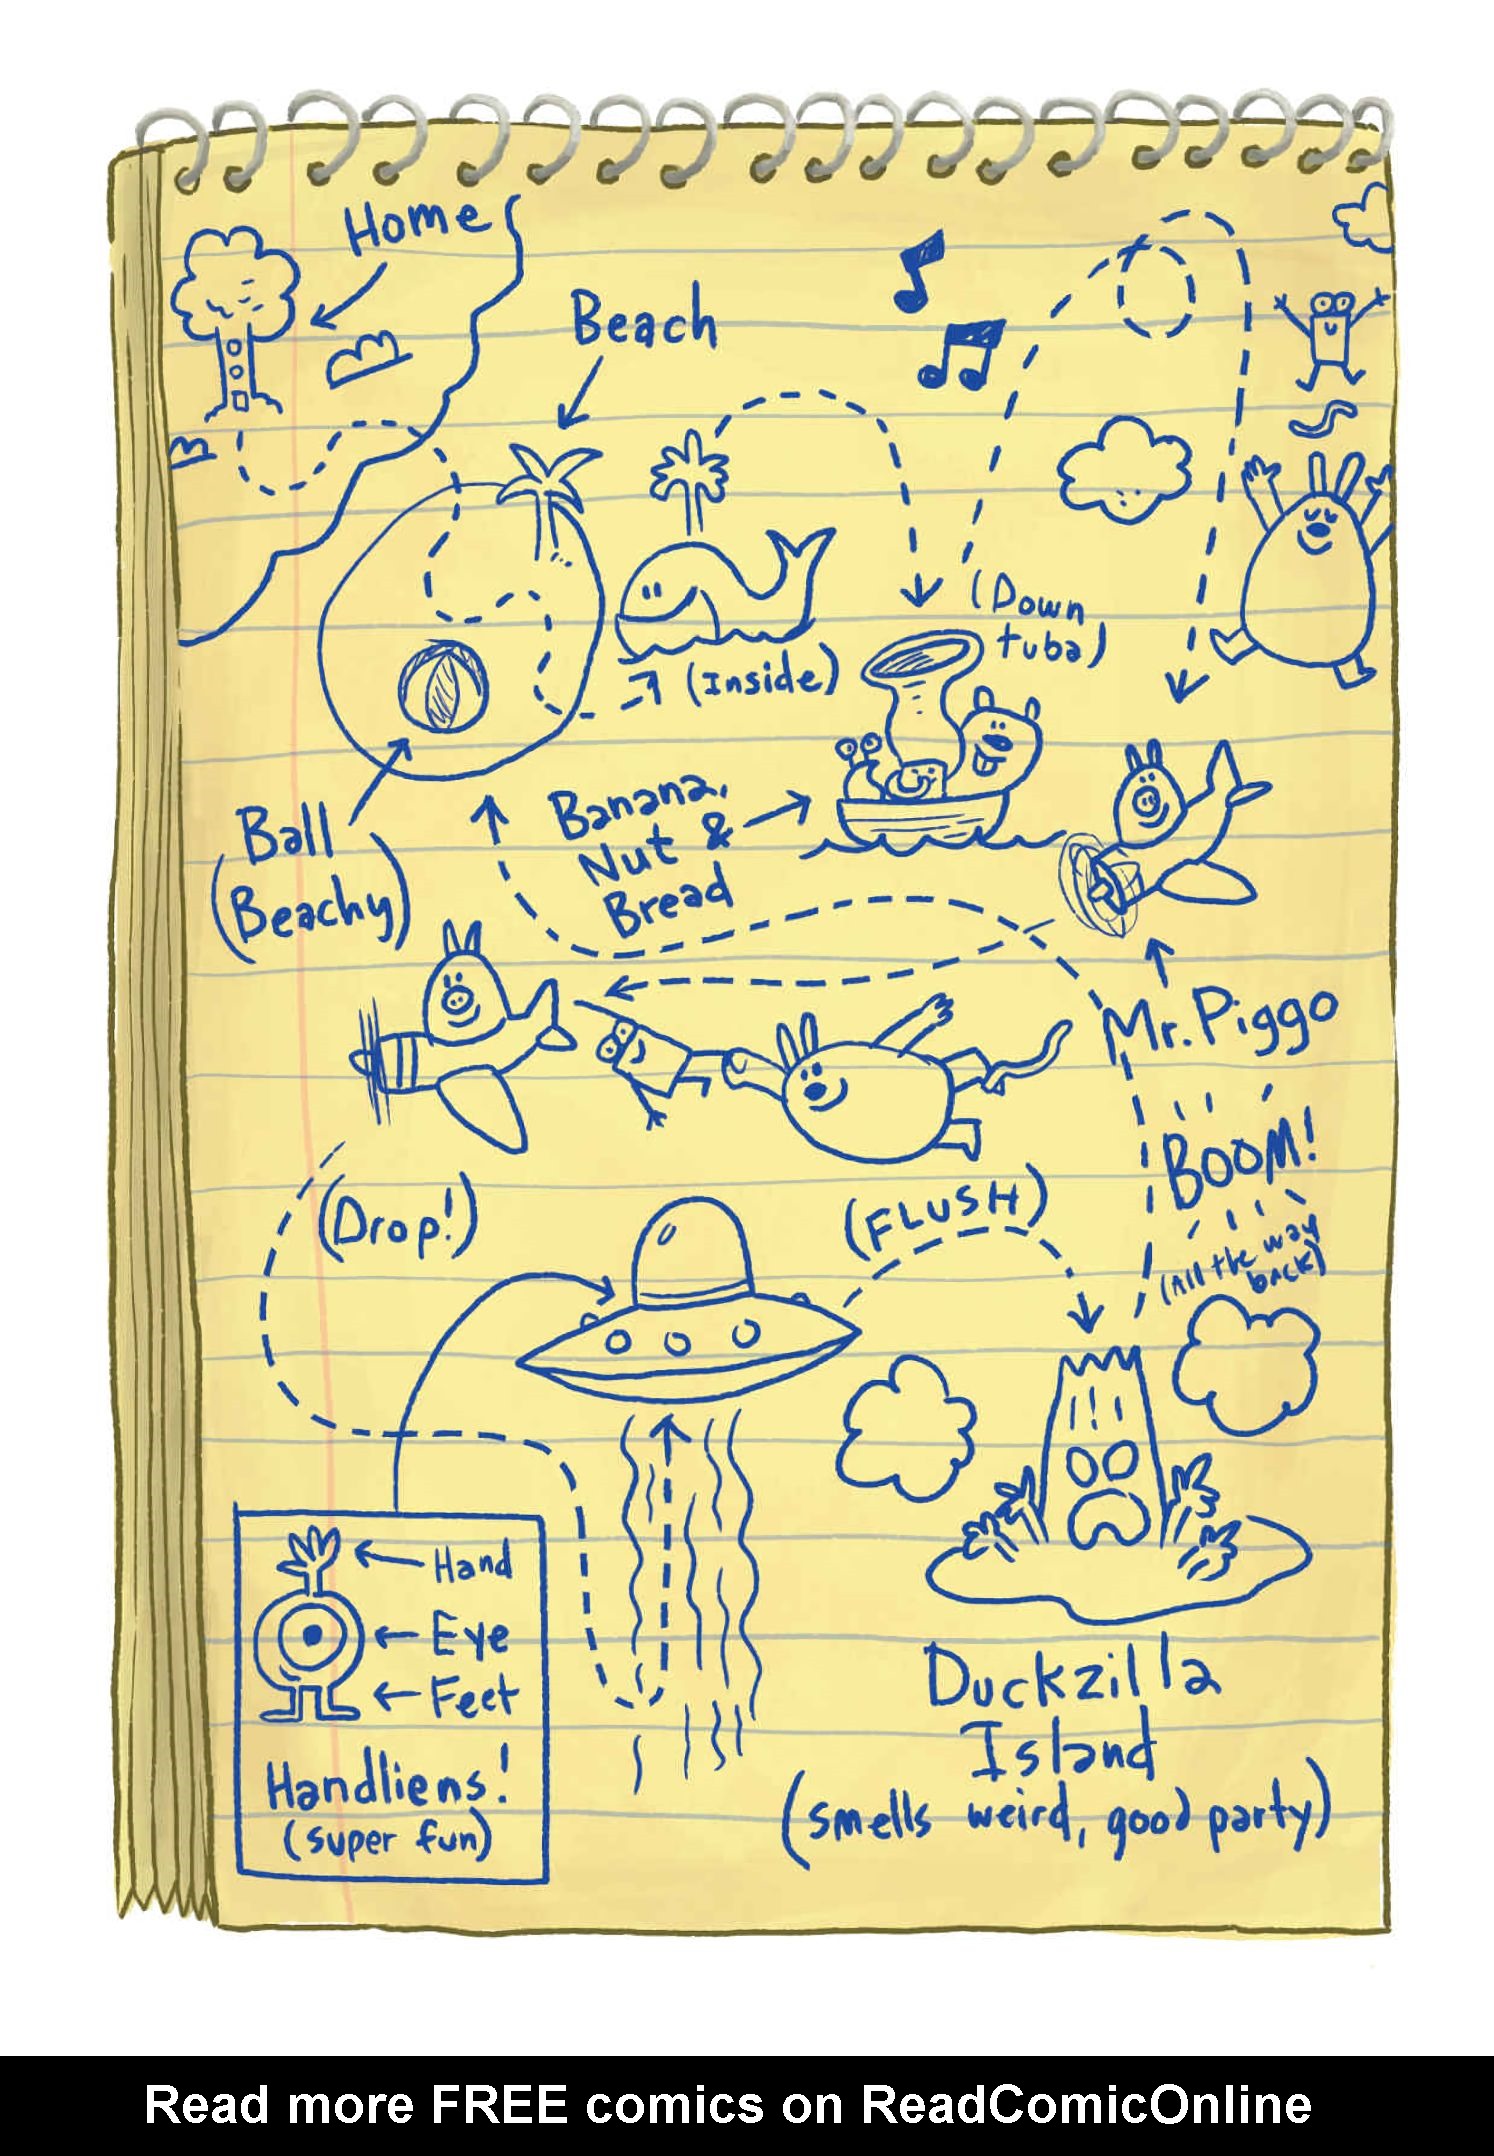 Home
Beach
(Down
tuba)
(Inside)
Banana,
Nut &
Bread
Ball
(Beachy)
Mr. Piggo
BOOM!
(All the way
back)
(Drop!)
(FLUSH)
Hand
Eye
Feet
Handliens!
(super fun)
Duckzilla
Island
(smells weird, good party)
Read more FREE comics on ReadComicOnline